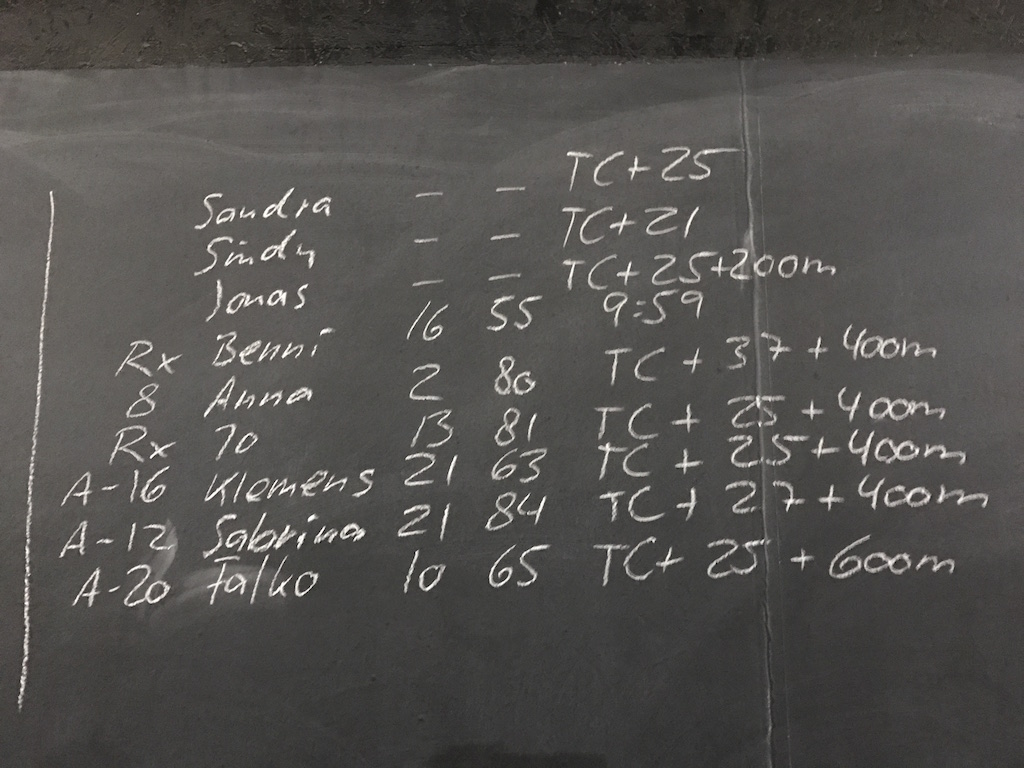 Sandra - - TC+25
Sindy - - TC+21
Jonas - - TC+25+200m
Rx Benni 16 55 9:59
8 Anna 2 80 TC + 37 + 400m
Rx Jo 13 81 TC + 25 + 400m
A-16 Klemens 21 63 TC + 25+400m
A-12 Sabrina 21 84 TC + 27 + 400m
A-20 Falko 10 65 TC+ 25 + 600m